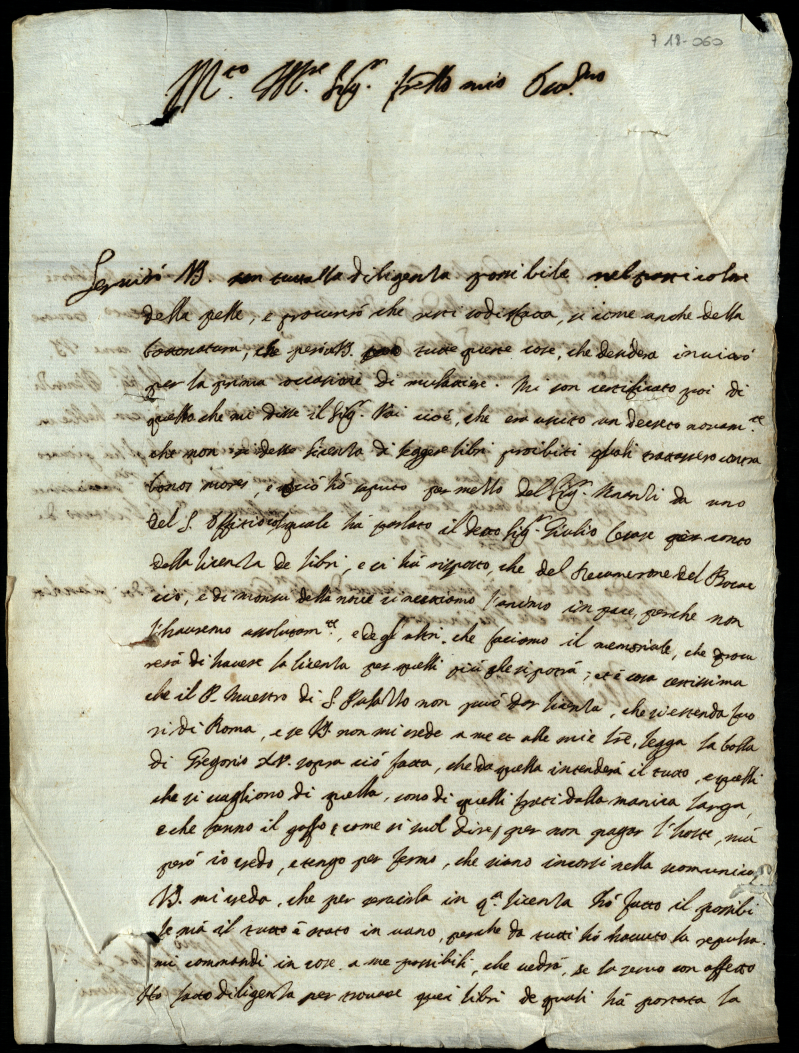 718-060
M.to Ill.re Sig.r fr̃ello mio Oss.mo
Servirò VS. con tutta la diligenza possibile nel particolare
della pelle, e procurerò che resti sodisfatta, si come anche della
che però VS. tutte queste cose, che desidera inviarò
per la prima occasione di mulattiere. Mi son certificato poi di
quello, che mi disse il Sig.r cioè, che era uscito un decreto novam.te
che non si desse licenza di leggere libri proibiti quali trattassero contra
bonos mores, e ciò hò saputo per mezzo del Sig.r da uno
del S. Offitio, col quale hà parlato il detto Sig.r Giulio Cesare per conto
della licenza de libri, e ci hà risposto, che del Decamerone del Bocac
cio, e di monsu della noue ci mettiamo l'animo in pace, perche non
l'hauremo assolutam.te, e de gl'altri, che facciamo il memoriale, che procu
rerà di havere la licenza per quelli più che si potrà; et è cosa certissima
che il P. Maestro di S. Palazzo non può dar licenza, che si estenda fuo
ri di Roma, e se VS. non mi crede a me et alle mie lr̃e, legga la bolla
di Gregorio XV. sopra ciò fatta, che da quella intenderà il tutto, e quelli
che si vagliono di quella, sono di quelli frati dalla manica larga,
e che fanno il goffo, come si suol dire, per non pagar l'hoste, mà
però io credo, e tengo per fermo, che siano incorsi nella scomunica,
VS. mi creda, che per servirla in q.a licenza hò fatto il possibi
le mà il tutto è stato in vano, perche da tutti hò havuto la repulsa.
mi commandi in cose a me possibili, che vedrà, se la servo con affetto
Hò fatto diligenza per trovare quei libri de quali hà portata la